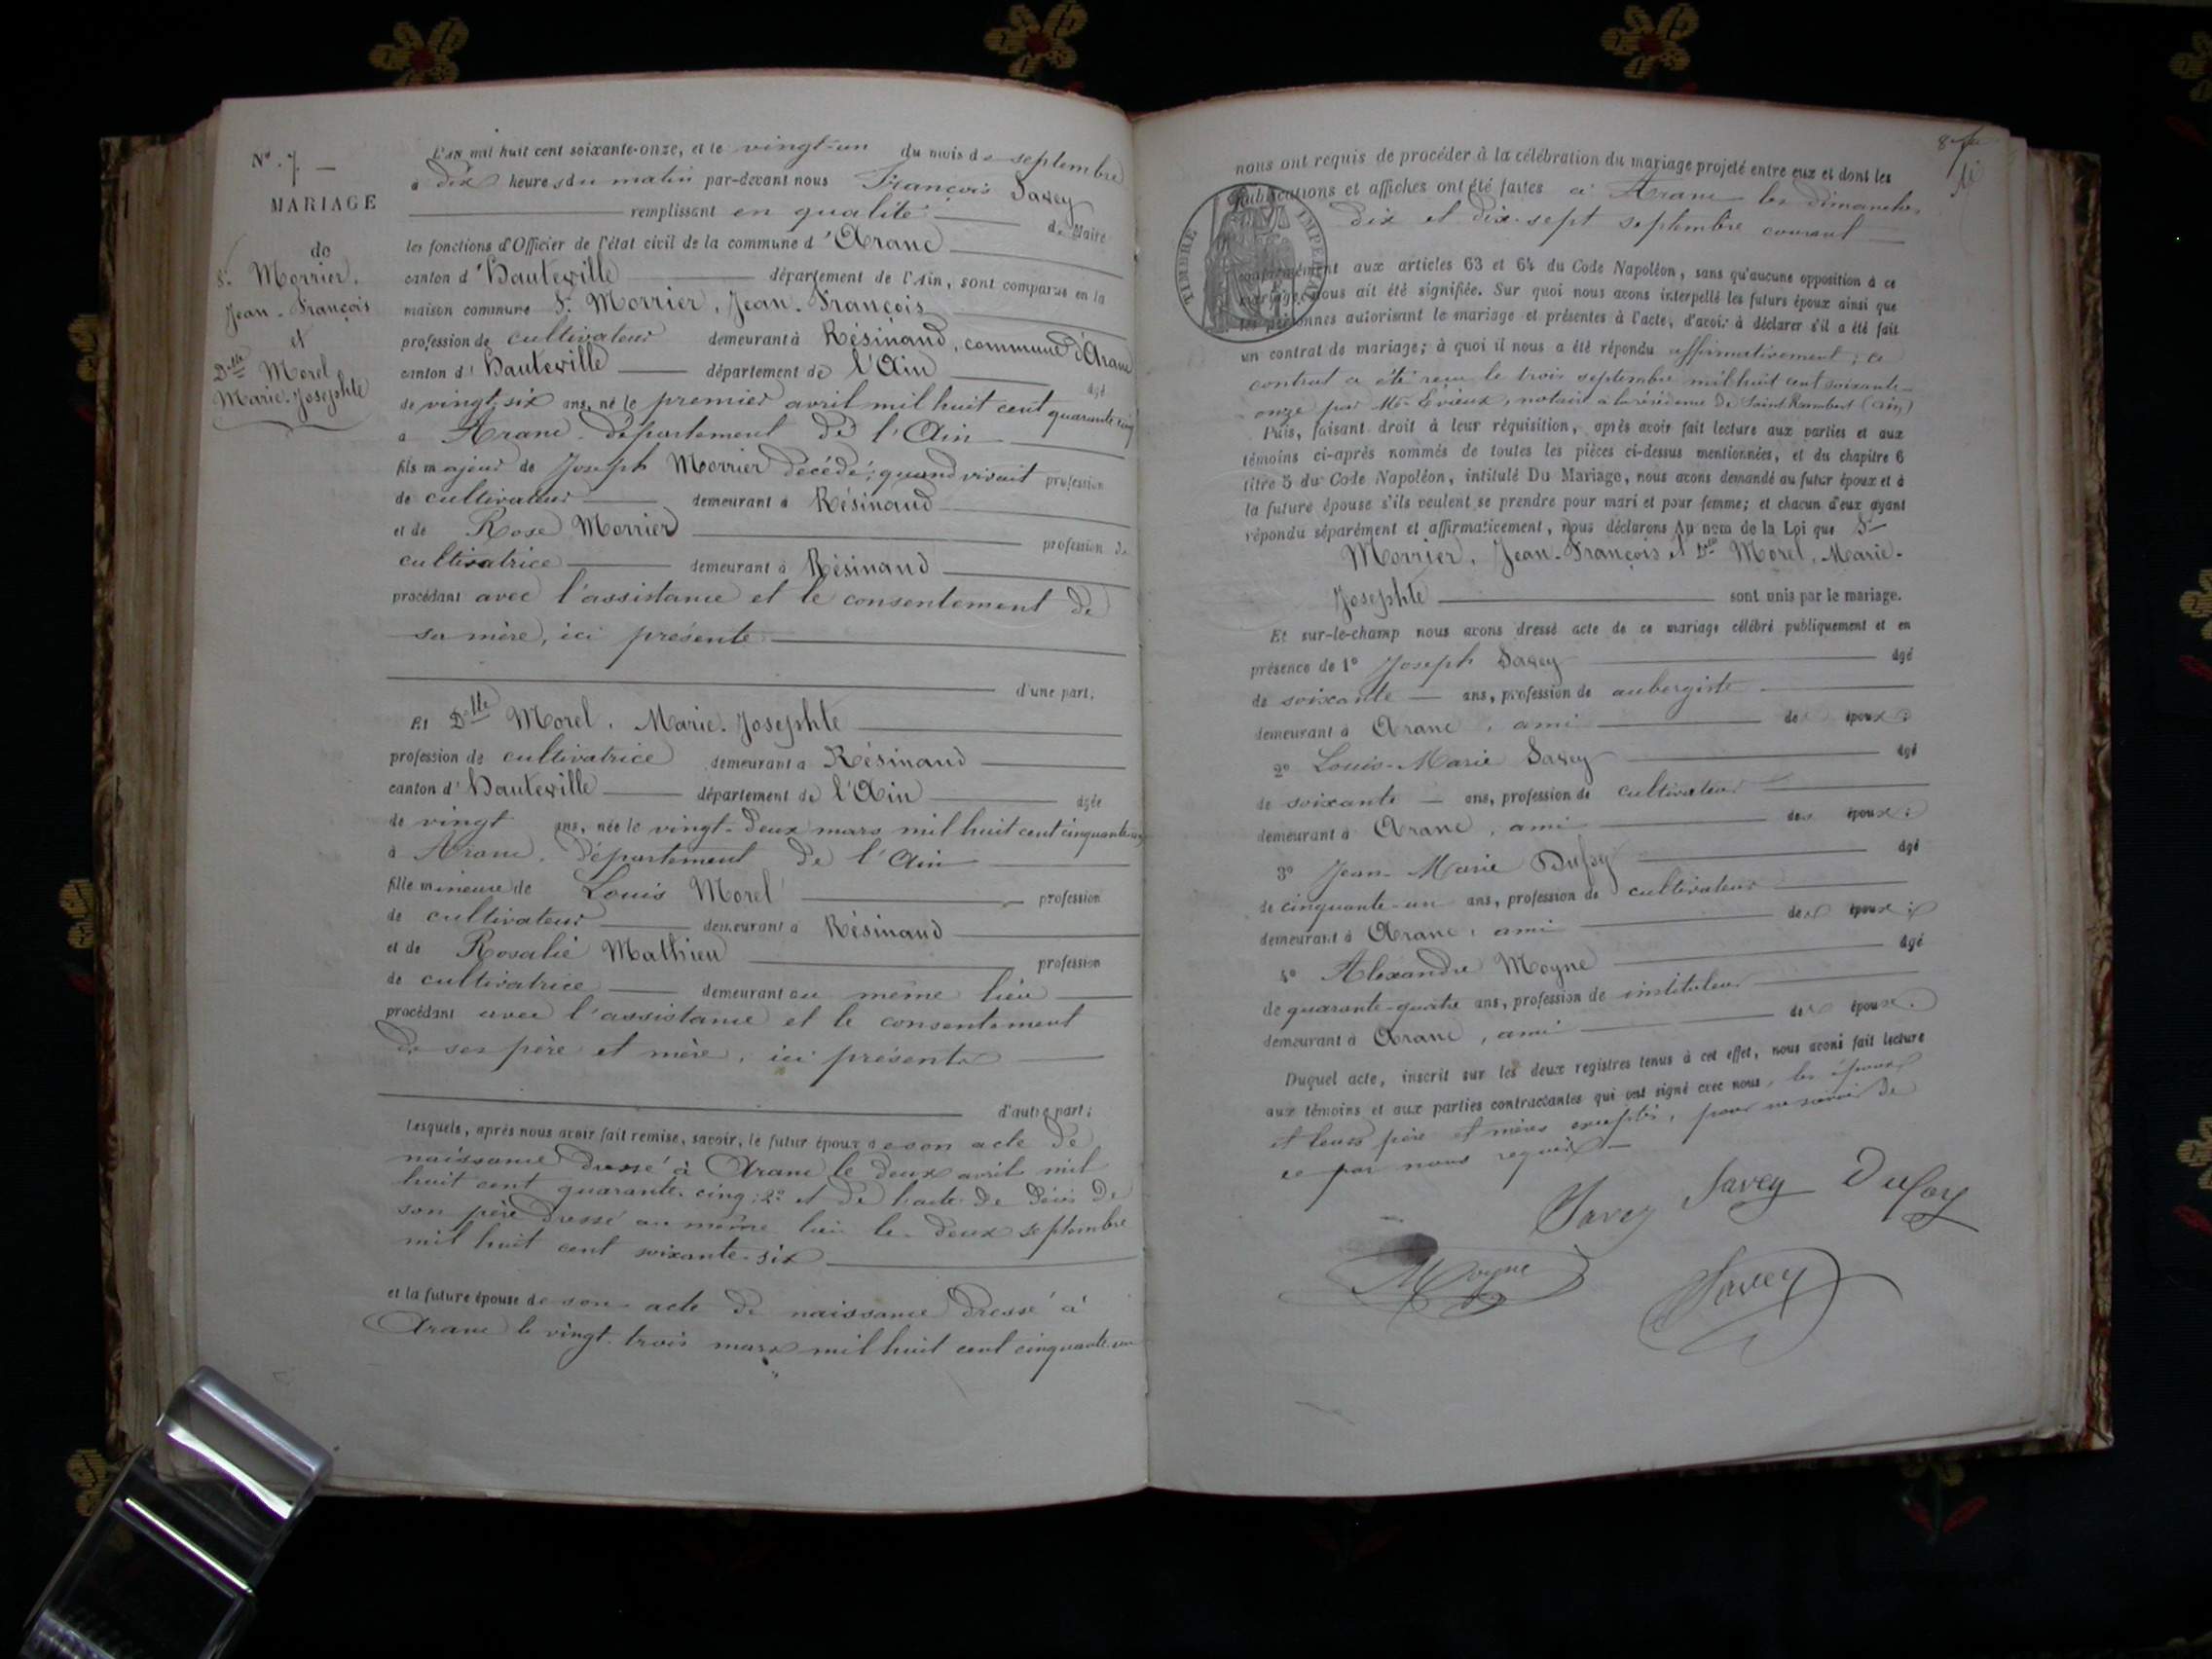 N° 7
MARIAGE
de
Sr Morrier,
Jean-François
et
Dlle Morel
Marie-Josephte
L'an mil huit cent soixante-onze, et le vingt-un du mois de septembre
à dix heures du matin par-devant nous François Savey
remplissant en qualité de Maire
les fonctions d'Officier de l'état civil de la commune d'Aranc
canton d'Hauteville département de l'Ain, sont comparus en la
maison commune Sr Morrier, Jean-François
profession de cultivateur demeurant à Résinand, commune d'Aranc
canton d'Hauteville département de l'Ain âgé
de vingt-six ans, né le premier avril mil huit cent quarante-cinq
à Aranc, département de l'Ain
fils majeur de Joseph Morrier décédé, quand vivait profession
de cultivateur demeurant à Résinand
et de Rose Morrier profession de
cultivatrice demeurant à Résinand
procédant avec l'assistance et le consentement de
sa mère, ici présente
d'une part;
Et Dlle Morel, Marie-Josephte
profession de cultivatrice demeurant à Résinand
canton d'Hauteville département de l'Ain âgée
de vingt ans, née le vingt-deux mars mil huit cent cinquante-un
à Aranc, département de l'Ain
fille mineure de Louis Morel profession
de cultivateur demeurant à Résinand
et de Rosalie Mathieu profession
de cultivatrice demeurant au même lieu
procédant avec l'assistance et le consentement
de ses père et mère, ici présents
d'autre part;
Lesquels, après nous avoir fait remise, savoir, le futur époux de son acte de
naissance dressé à Aranc le deux avril mil
huit cent quarante-cinq; 2° et de l'acte de décès de
son père dressé au même lieu le deux septembre
mil huit cent soixante-six
et la future épouse de son acte de naissance dressé à
Aranc le vingt-trois mars mil huit cent cinquante-un
nous ont requis de procéder à la célébration du mariage projeté entre eux et dont les
publications et affiches ont été faites à Aranc les dimanches
dix et dix-sept septembre courant
TIMBRE IMPÉRIAL
conformément aux articles 63 et 64 du Code Napoléon, sans qu'aucune opposition à ce
mariage nous ait été signifiée. Sur quoi nous avons interpellé les futurs époux ainsi que
les personnes autorisant le mariage et présentes à l'acte, d'avoir à déclarer s'il a été fait
un contrat de mariage; à quoi il nous a été répondu affirmativement; ce
contrat a été reçu le trois septembre mil huit cent soixante-
onze par Me Evieux, notaire à la résidence de Saint Rambert (Ain)
Puis, faisant droit à leur réquisition, après avoir fait lecture aux parties et aux
témoins ci-après nommés de toutes les pièces ci-dessus mentionnées, et du chapitre 6
titre 5 du Code Napoléon, intitulé Du Mariage, nous avons demandé au futur époux et à
la future épouse s'ils veulent se prendre pour mari et pour femme; et chacun d'eux ayant
répondu séparément et affirmativement, nous déclarons Au nom de la Loi que Sr
Morrier, Jean-François et Dlle Morel, Marie-
Josephte sont unis par le mariage.
Et sur-le-champ nous avons dressé acte de ce mariage célébré publiquement et en
présence de 1° Joseph Savey âgé
de soixante ans, profession de aubergiste
demeurant à Aranc, ami des époux;
2° Louis-Marie Savey âgé
de soixante ans, profession de cultivateur
demeurant à Aranc, ami des époux;
3° Jean-Marie Dufoy âgé
de cinquante-un ans, profession de cultivateur
demeurant à Aranc, ami des époux;
4° Alexandre Moyne âgé
de quarante-quatre ans, profession de instituteur
demeurant à Aranc, ami des époux.
Duquel acte, inscrit sur les deux registres tenus à cet effet, nous avons fait lecture
aux témoins et aux parties contractantes qui ont signé avec nous, les époux
et leurs père et mères exceptés, pour ne savoir de
ce par nous requis
Savey Savey Dufoy
Moyne Savey